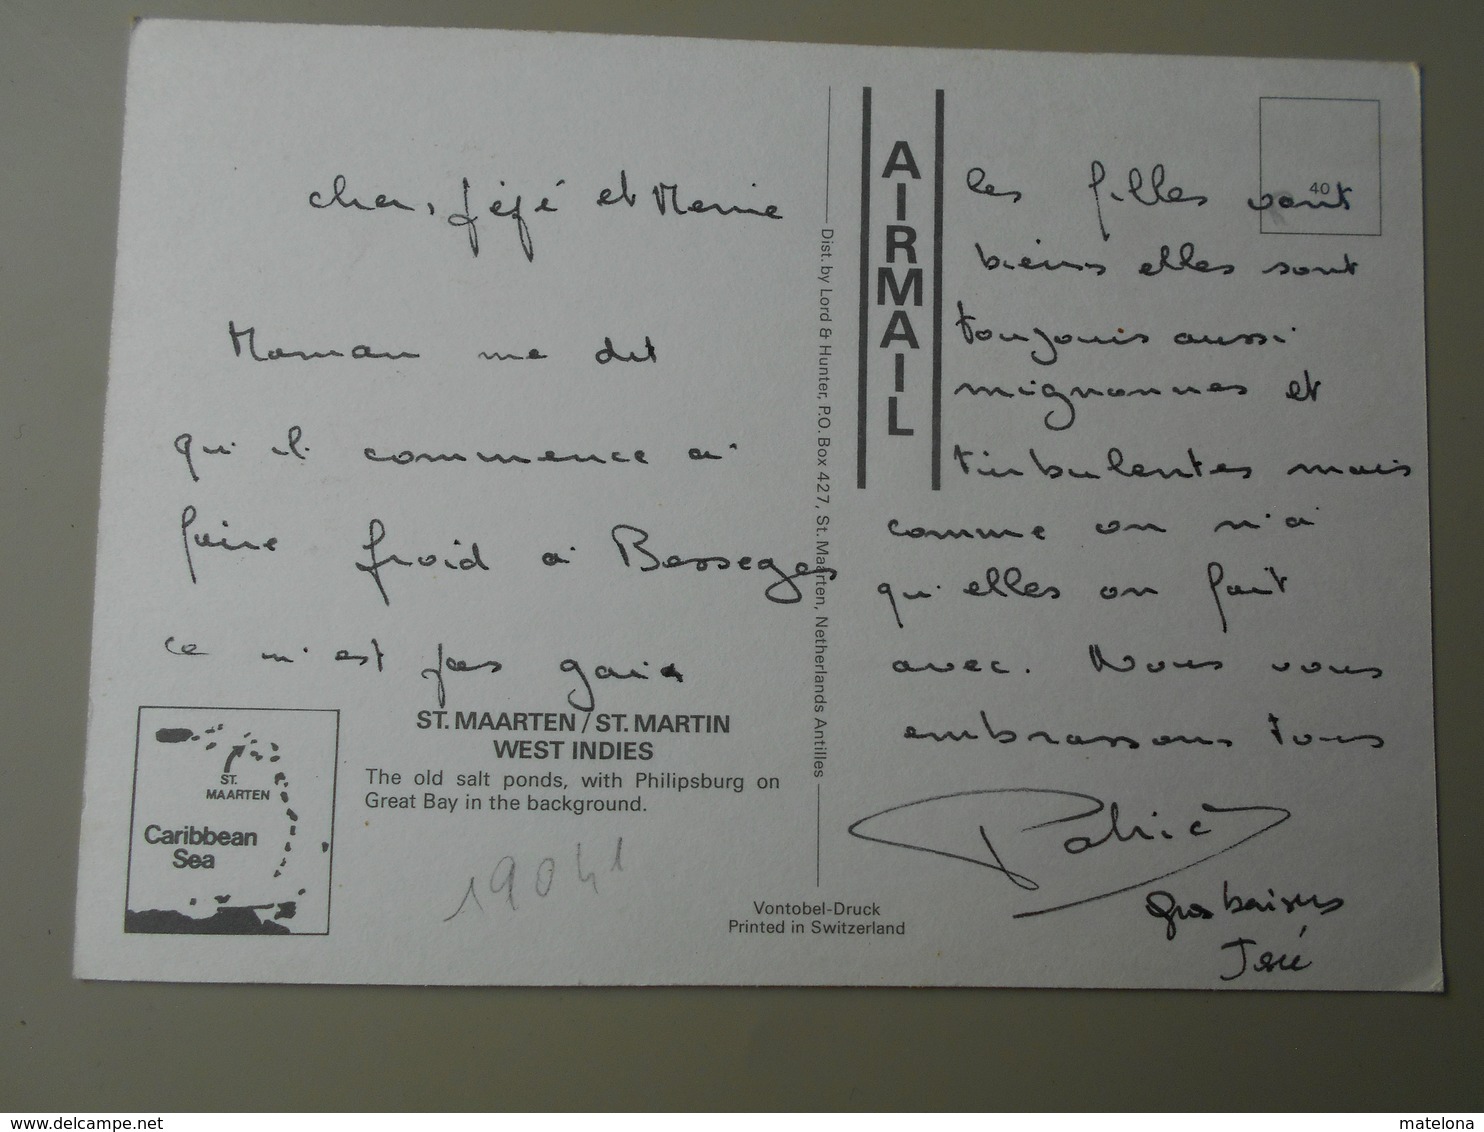 cher, féfé et Memie
Maman me dit
qu'il commence a
faire froid a Besseges
ce n'est pas gai
ST. MAARTEN / ST. MARTIN
WEST INDIES
The old salt ponds, with Philipsburg on
Great Bay in the background.
ST.
MAARTEN
Caribbean
Sea
19041
Dist. by Lord & Hunter, P.O. Box 427, St. Maarten, Netherlands Antilles
Vontobel-Druck
Printed in Switzerland
AIRMAIL
40
les filles vont
biens elles sont
toujouis aussi
mignonnes et
tirbulentes mais
comme on n'a
qu'elles on fait
avec. Nous vous
embrassons tous
Patrick
Gros baisers
delcampe.net
matelona